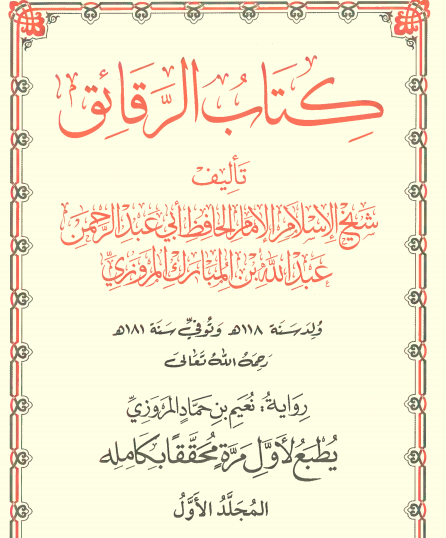 كِتَابُ الرَّقَائِق
تَأليف
شَيْخِ الإِسْلَامِ الإِمَامِ الحَافِظِ أَبِي عَبْدِ الرَّحْمٰنِ
عَبْدِ اللَّهِ بْنِ المُبَارَكِ المَرْوَزِيِّ
وُلِدَ سَنَة ١١٨ھ وَتُوُفِّيَ سَنَة ١٨١ھ
رَحِمَهُ اللهُ تَعَالَى
رِوَايَةُ: نُعَيْمِ بنِ حَمَّادٍ المَرْوَزِيِّ
يُطْبَعُ لأَوَّلِ مَرَّةٍ مُحَقَّقًا بِكَامِلِهِ
المُجَلَّدُ الأَوَّلُ